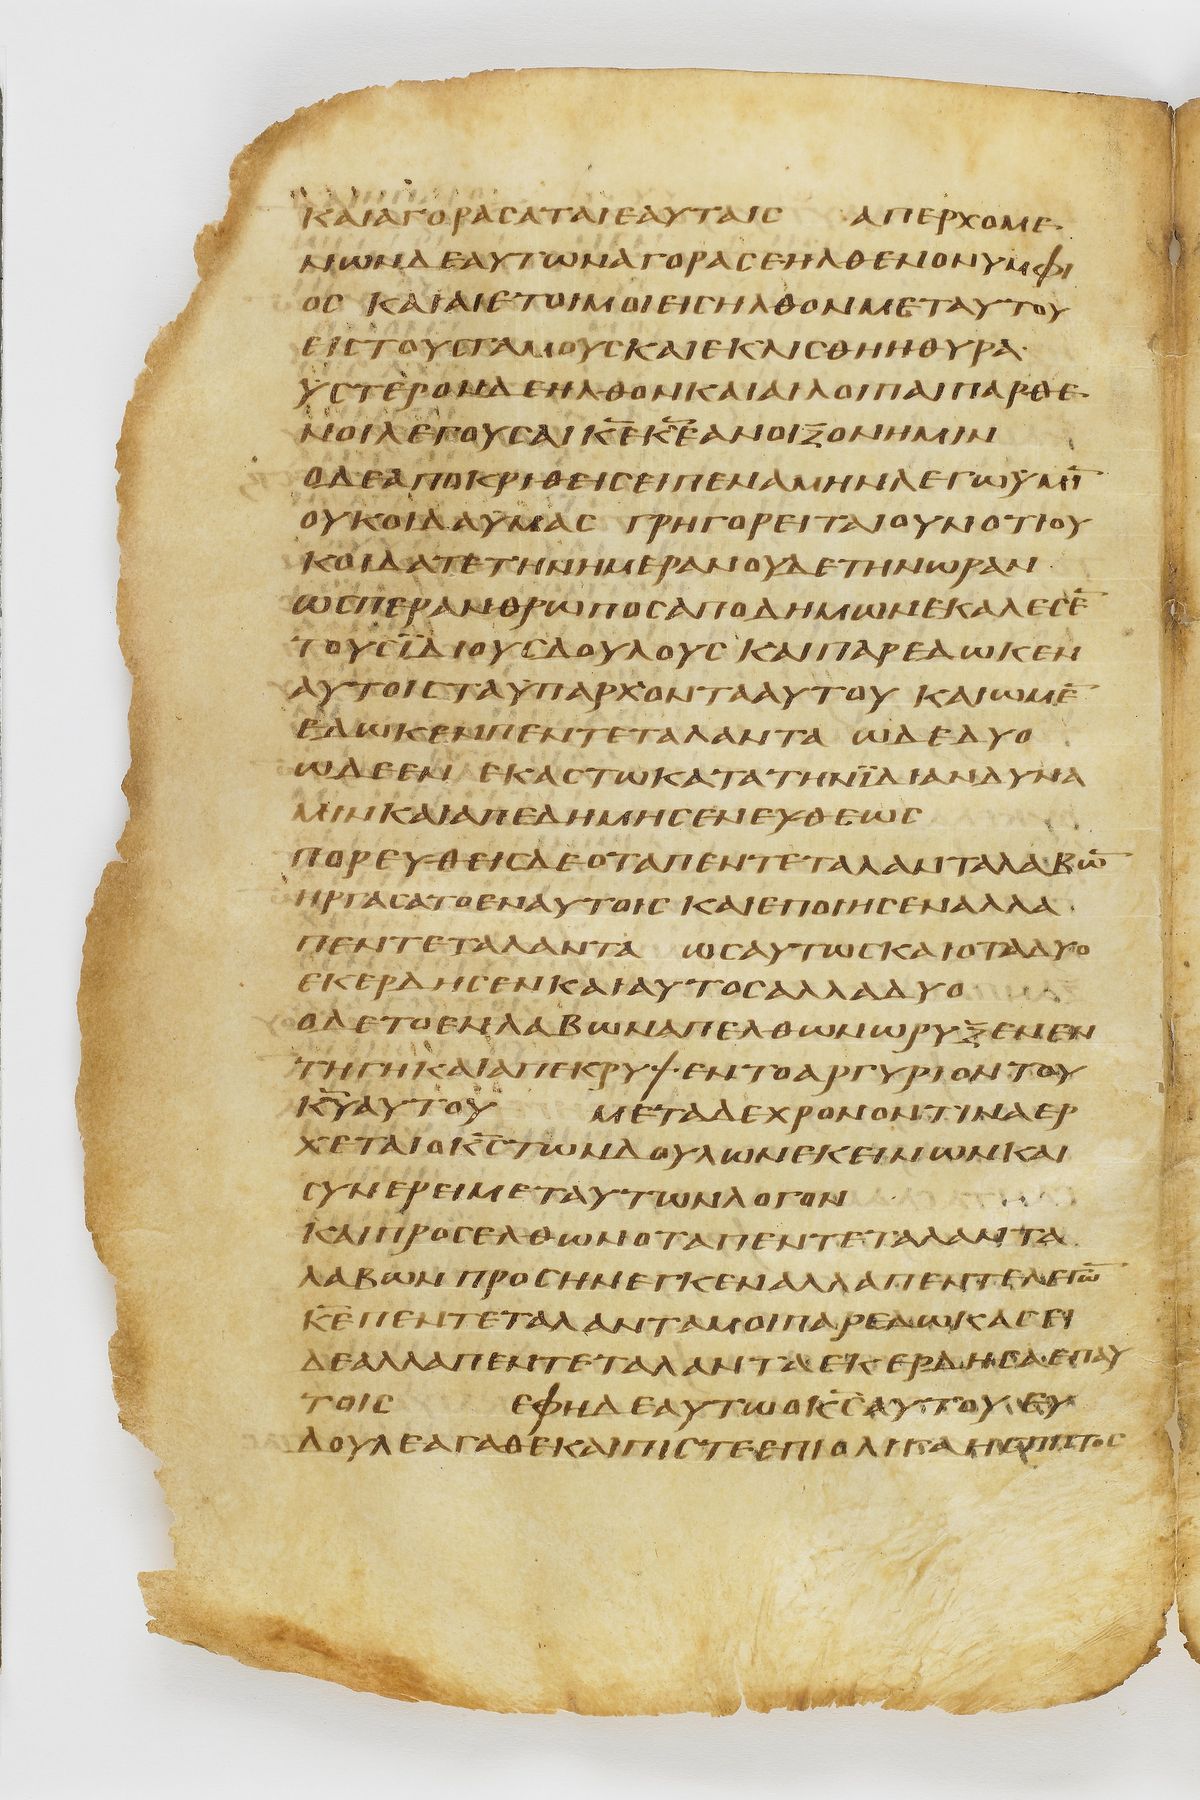 ΚΑΙΑΓΟΡΑCΑΤΑΙΕΑΥΤΑΙC ΑΠΕΡΧΟΜΕ
ΝΩΝΔΕΑΥΤΩΝΑΓΟΡΑCΕΗΛΘΕΝΟΝΥΜΦΙ
ΟC ΚΑΙΑΙΕΤΟΙΜΟΙΕΙCΗΛΘΟΝΜΕΤΑΥΤΟΥ
ΕΙCΤΟΥCΓΑΜΟΥCΚΑΙΕΚΛΙCΘΗΗΘΥΡΑ·
ΥCΤΕΡΟΝΔΕΗΛΘΟΝΚΑΙΑΙΛΟΙΠΑΙΠΑΡΘΕ
ΝΟΙΛΕΓΟΥCΑΙΚ̅Ε̅Κ̅Ε̅ΑΝΟΙΞΟΝΗΜΙΝ
ΟΔΕΑΠΟΚΡΙΘΕΙCΕΙΠΕΝΑΜΗΝΛΕΓΩΫΜΙ̅
ΟΥΚΟΙΔΑΥΜΑC ΓΡΗΓΟΡΕΙΤΑΙΟΥΝΟΤΙΟΥ
ΚΟΙΔΑΤΕΤΗΝΗΜΕΡΑΝΟΥΔΕΤΗΝΩΡΑΝ·
ΩCΠΕΡΑΝΘΡΩΠΟCΑΠΟΔΗΜΩΝΕΚΑΛΕCΕ̅
ΤΟΥCΪΔΙΟΥCΔΟΥΛΟΥC ΚΑΙΠΑΡΕΔΩΚΕΝ
ΑΥΤΟΙCΤΑΥΠΑΡΧΟΝΤΑΑΥΤΟΥ ΚΑΙΩΜΕ̅
ΕΔΩΚΕΝΠΕΝΤΕΤΑΛΑΝΤΑ ΩΔΕΔΥΟ
ΩΔΕΕΝ ΕΚΑCΤΩΚΑΤΑΤΗΝΪΔΙΑΝΔΥΝΑ
ΜΙΝΚΑΙΑΠΕΔΗΜΗCΕΝΕΥΘΕΩC
ΠΟΡΕΥΘΕΙCΔΕΟΤΑΠΕΝΤΕΤΑΛΑΝΤΑΛΑΒΩ̅
ΗΡΓΑCΑΤΟΕΝΑΥΤΟΙC ΚΑΙΕΠΟΙΗCΕΝΑΛΛΑ
ΠΕΝΤΕΤΑΛΑΝΤΑ ΩCΑΥΤΩCΚΑΙΟΤΑΔΥΟ
ΕΚΕΡΔΗCΕΝΚΑΙΑΥΤΟCΑΛΛΑΔΥΟ
ΟΔΕΤΟΕΝΛΑΒΩΝΑΠΕΛΘΩΝΩΡΥΞΕΝΕΝ
ΤΗΓΗΚΑΙΑΠΕΚΡΥΨΕΝΤΟΑΡΓΥΡΙΟΝΤΟΥ
Κ̅Υ̅ΑΥΤΟΥ ΜΕΤΑΔΕΧΡΟΝΟΝΤΙΝΑΕΡ
ΧΕΤΑΙΟΚ̅C̅ΤΩΝΔΟΥΛΩΝΕΚΕΙΝΩΝΚΑΙ
CΥΝΕΡΕΙΜΕΤΑΥΤΩΝΛΟΓΟΝ
ΚΑΙΠΡΟCΕΛΘΩΝΟΤΑΠΕΝΤΕΤΑΛΑΝΤΑ
ΛΑΒΩΝΠΡΟCΗΝΕΓΚΕΝΑΛΛΑΠΕΝΤΕΛΕΓΩ̅
Κ̅Ε̅ΠΕΝΤΕΤΑΛΑΝΤΑΜΟΙΠΑΡΕΔΩΚΑCΕΙ
ΔΕΑΛΛΑΠΕΝΤΕΤΑΛΑΝΤΑΕΚΕΡΔΗCΑΕΠΑΥ
ΤΟΙC ΕΦΗΔΕΑΥΤΩΟΚ̅C̅ΑΥΤΟΥ ΕΥ
ΔΟΥΛΕΑΓΑΘΕΚΑΙΠΙCΤΕΕΠΙΟΛΙΓΑΗCΠΙCΤΟC